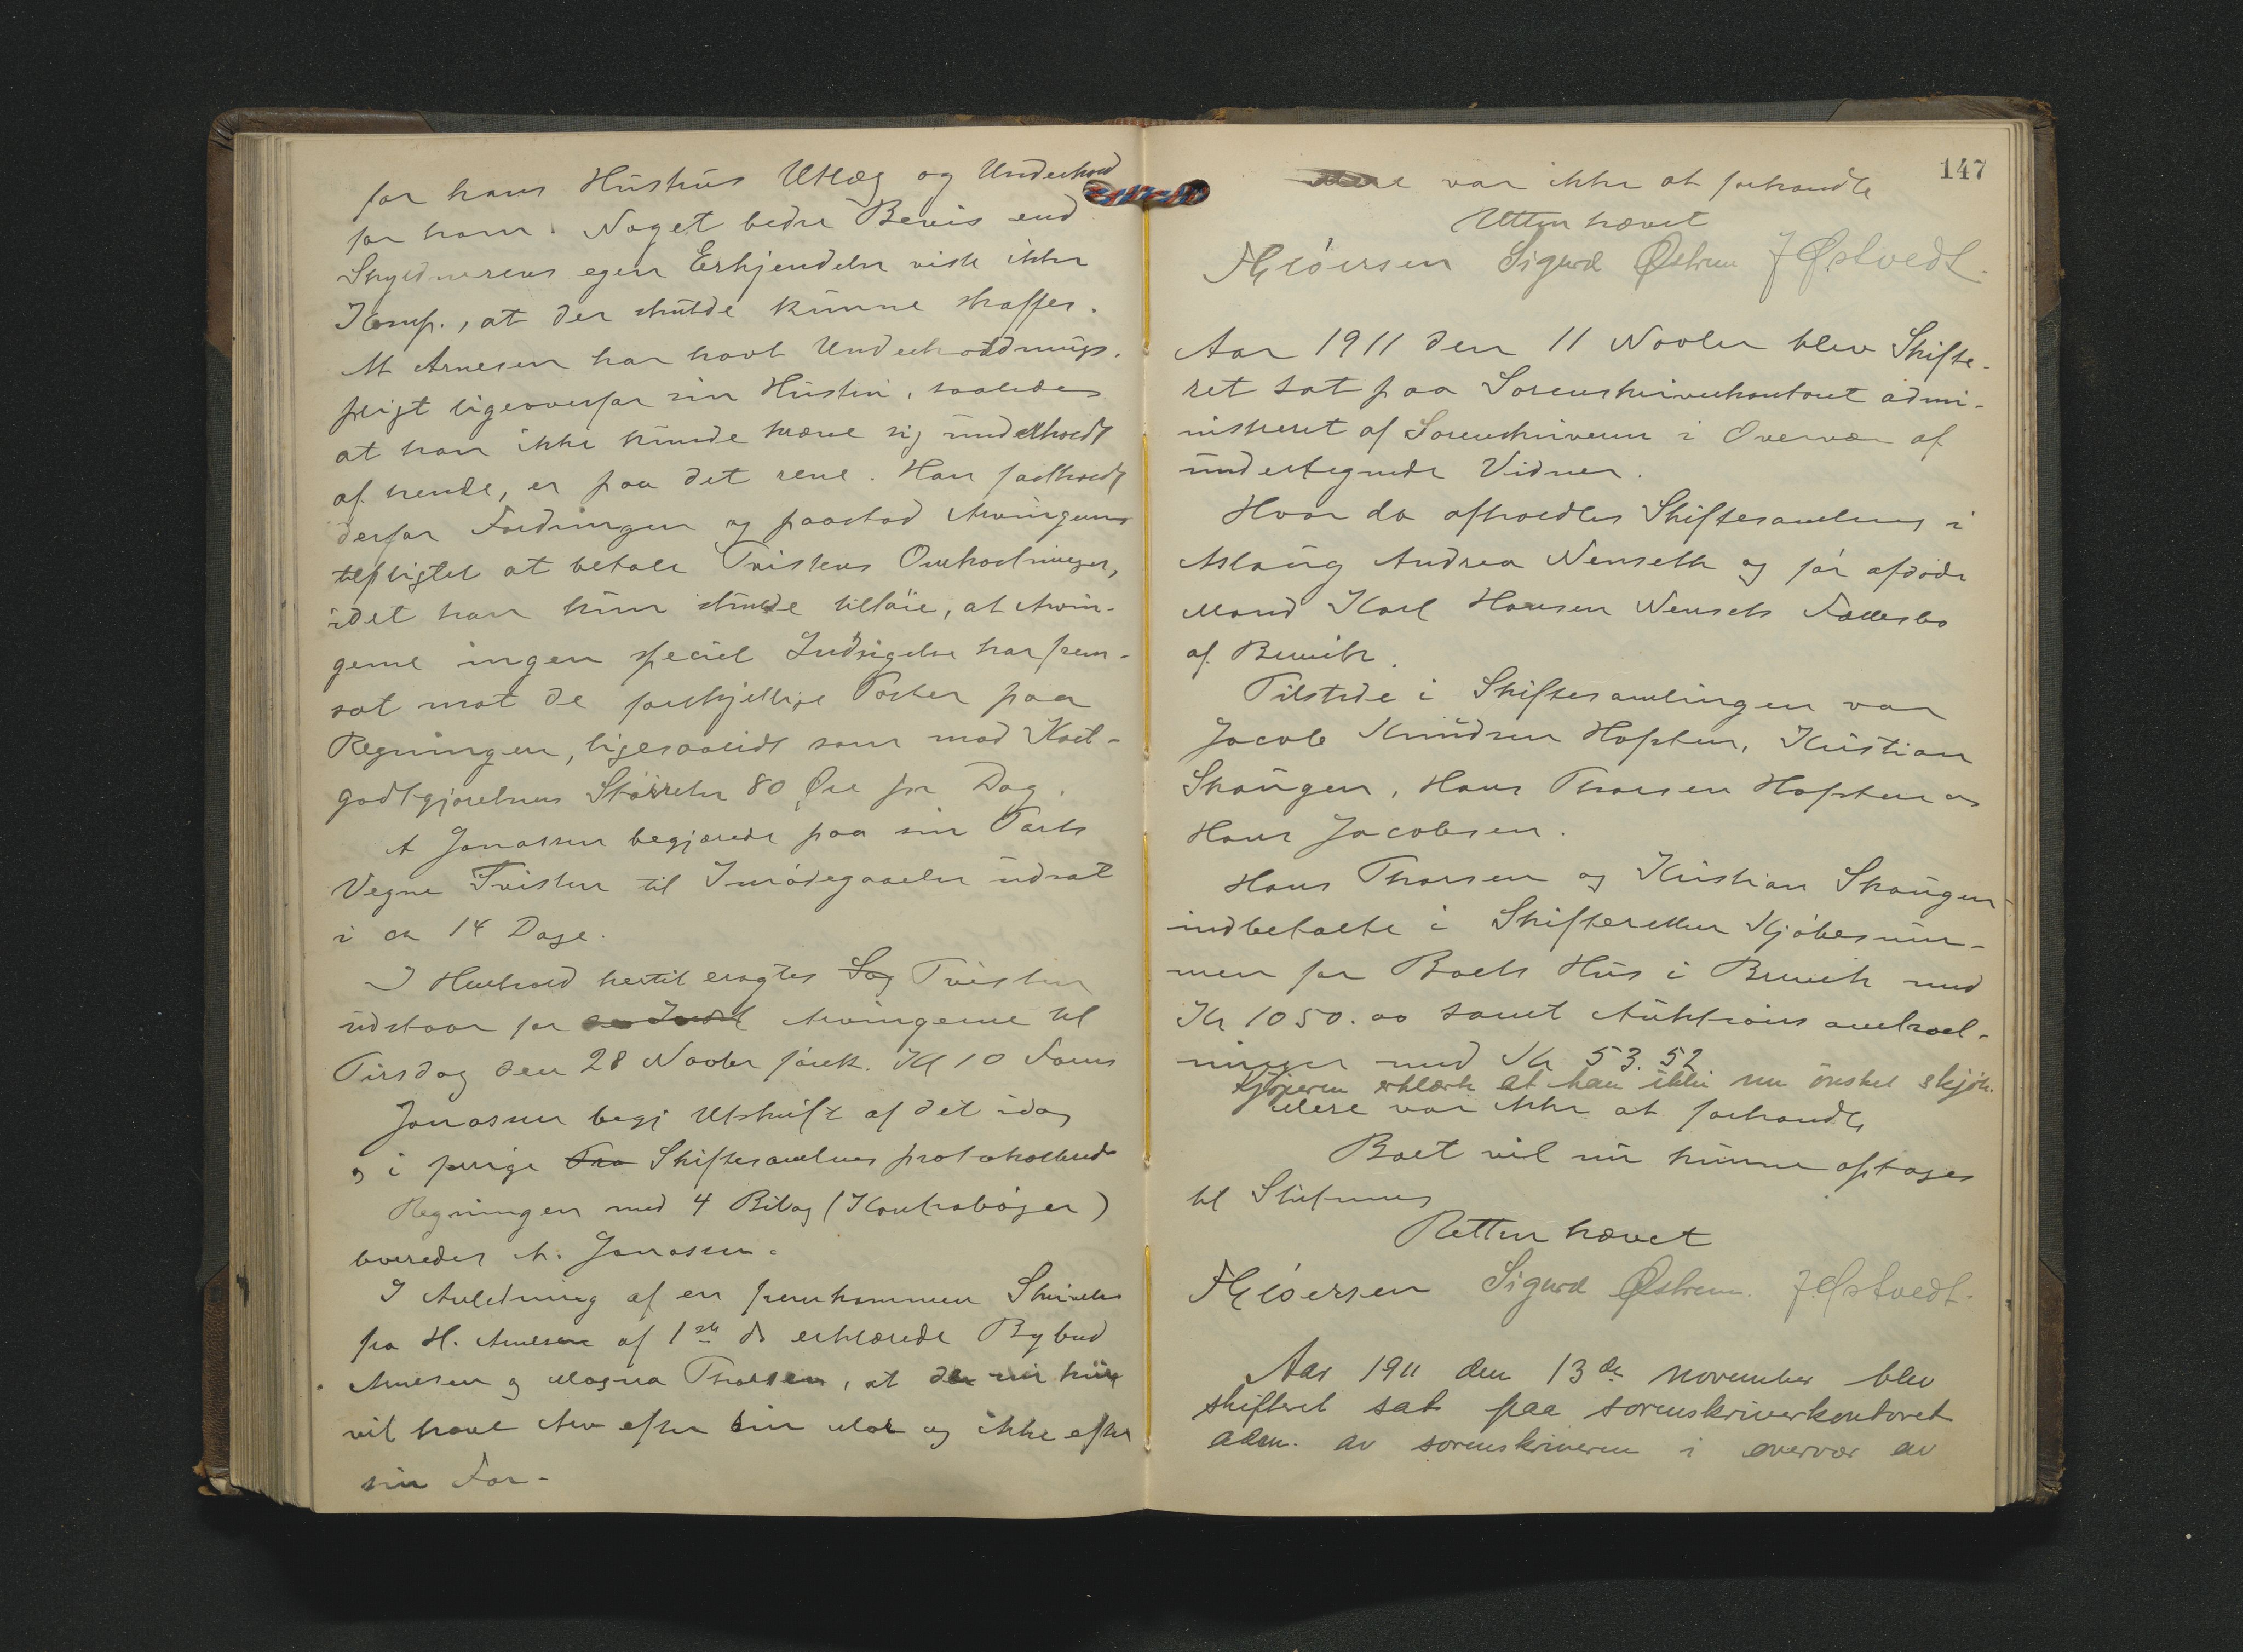 for hans Hustrus Utlæg og Underhold
for ham. Noget bedre Bevis end
Skyldnerens egen Erkjendelse viste ikke
Komp., at der skulde kunne skaffes.
At Arnesen har havt Underholdnings-
pligt ligeoverfor sin Hustru, saaledes
at han ikke kunde kræve sig underholdt
af hende, er paa det rene. Han fastholdt
derfor Fordringen og paastod Arvingerne
tilpligtet at betale Tvistens Omkostninger,
idet han kun skulde tilføie, at Arvin-
gerne ingen speciel Indsigelse har frem-
sat mot de forskjellige Poster paa
Regningen, ligesaalidt som mod Kost-
godtgjørelsens Størrelse 80 Øre pr Dag.
A Jonassen begjærede paa sin Parts
Vegne Tvisten til Imødegaaelse udsat
i ca 14 Dage.
I Henhold hertil eragtes Sag Tvisten
udstaar for Arvingerne til
Tirsdag den 28 Novbr førstk. Kl 10 Form
Jonassen begj Utskrift af det idag
og i forrige Fra Skiftesamling protokollerede
Regningen med 4 Bilag (Kontrabøger)
leveredes A. Jonassen.
I Anledning af en fremkommen Skrivelse
fra H. Arnesen af 1ste ds erklærede Bybud
Arnesen og Magna Thorsen, at de nu kun
vil have Arv efter sin Mor og ikke efter
sin Far.
147
Mere var ikke at forhandle
Retten hævet
Sigurd Østrem J Østvedt.
Aar 1911 den 11 Novbr blev Skifte-
ret sat paa Sorenskriverkontoret admi-
nistreret af Sorenskriveren i Overvær af
undertegnede Vidner.
Hvor da afholdtes Skiftesamling i
Aslaug Andrea Nenseth og før afdøde
Mand Karl Hansen Nenseths Fællesbo
af Brevik.
Tilstede i Skiftesamlingen var
Jacob Knudsen Hopsten, Kristian
Skaugen, Hans Thorsen Hopsten og
Hans Jacobsen.
Hans Thorsen og Kristian Skaugen
indbetalte i Skifteretten Kjøbesum-
men for Boets Hus i Brevik med
Kr 1050.00 samt Auktionsomkost-
ninger med Kr 53.52
Kjøperen erklærte at han ikke nu ønsket skjøte.
Mere var ikke at forhandle
Boet vil nu kunne optages
til Slutning
Retten hævet
Sigurd Østrem. J. Østvedt.
Aar 1911 den 13de november blev
skifteret sat paa sorenskriverkontoret
adm. av sorenskriveren i overvær av